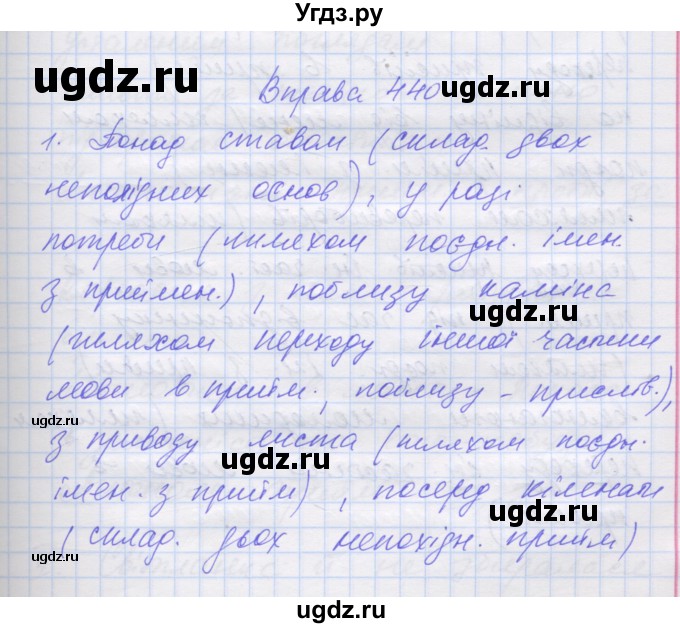 Угдз.ру
ugdz.ru
ugdz.ru
Вправа 440
1. Понад ставом (склад. двох
непохідних основ), у разі
потреби (шляхом поєдн. імен.
з приймен.), поблизу каміна
ugdz.ru
(шляхом переходу іншої частини
мови в прийм., поблизу - прислів.),
ugdz.ru
з приводу листа (шляхом поєдн.
ugdz.ru
імен. з прийм), посеред кімнати
ugdz.ru
(склад. двох непохідн. прийм)
ugdz.ru
ugdz.ru